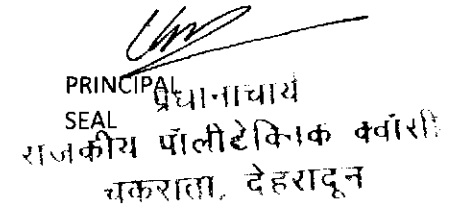 PRINCIPAL
प्रधानाचार्य
SEAL
राजकीय पॉलीटेक्निक क्वॉंसी
चकराता, देहरादून